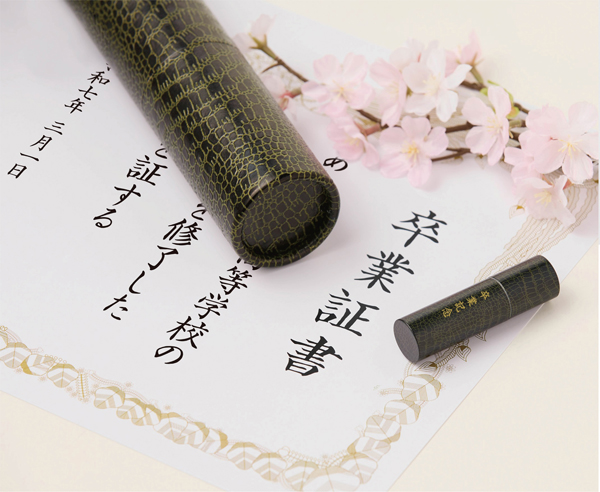 卒業証書
め
高等学校の
を修了した
を証する
和七年 三月一日
卒業記念